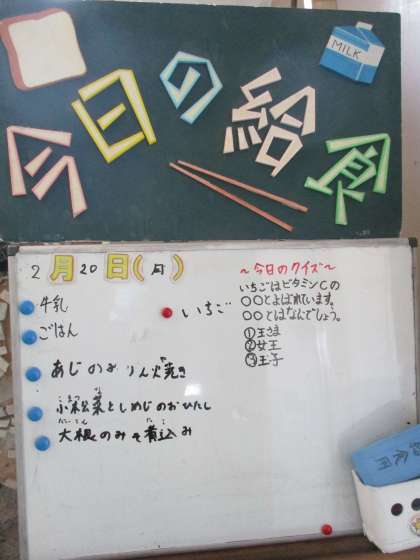 今日の給食
MILK
2月20日(月)
牛乳
いちご
ごはん
あじのみりん焼き
こまつな
小松菜としめじのおひたし
だいこん にこ
大根のみそ煮込み
～今日のクイズ～
いちごはビタミンCの
○○とよばれています。
○○とはなんでしょう。
①王さま
②女王
③王子